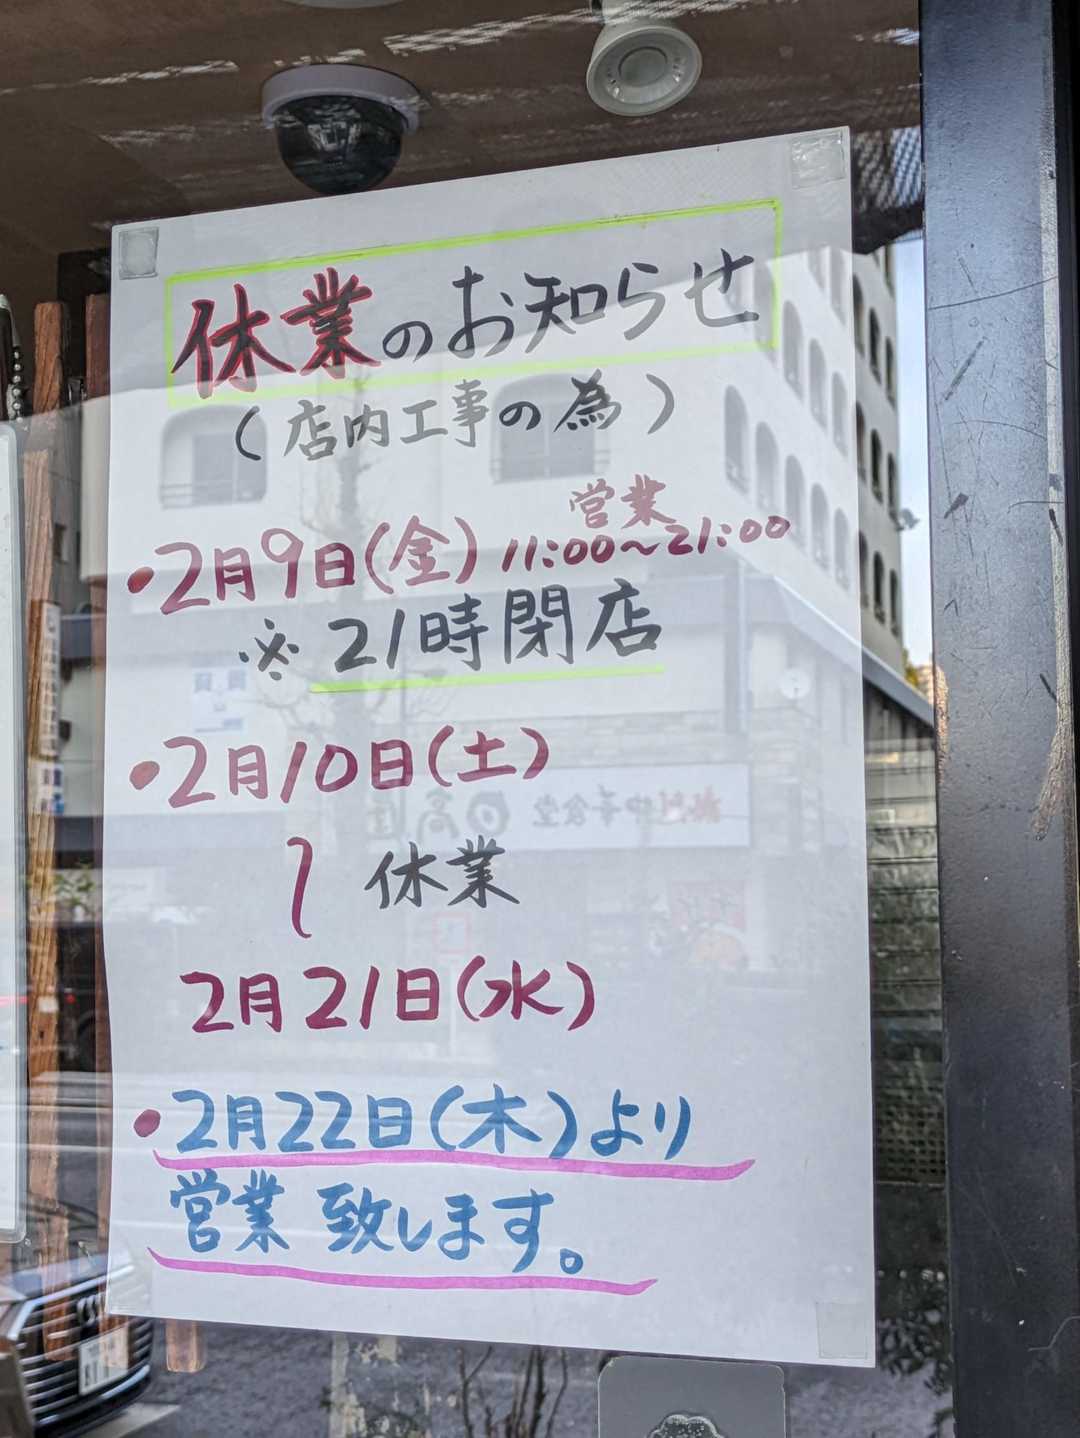 休業のお知らせ
(店内工事の為)
営業
・2月9日(金) 11:00〜21:00
※21時閉店
・2月10日(土)
〜 休業
2月21日(水)
・2月22日(木)より
営業 致します。